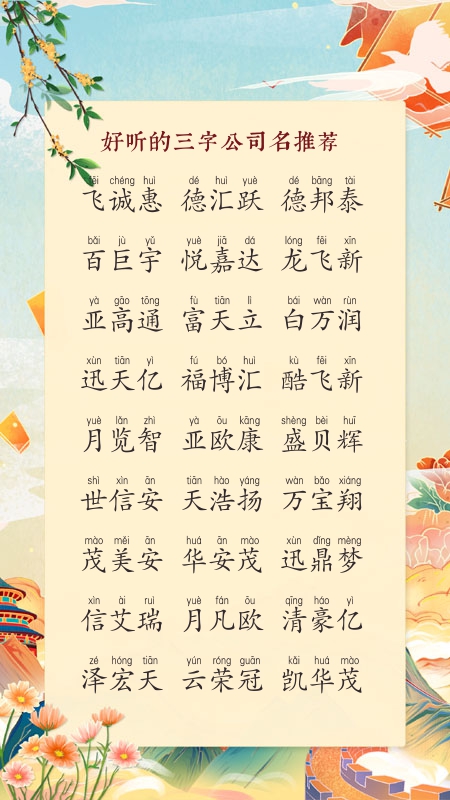 好听的三字公司名推荐
fēi chéng huì dé huì yuè dé bāng tài
飞诚惠 德汇跃 德邦泰
bǎi jù yǔ yuè jiā dá lóng fēi xīn
百巨宇 悦嘉达 龙飞新
yà gāo tōng fù tiān lì bái wàn rùn
亚高通 富天立 白万润
xùn tiān yì fú bó huì kù fēi xīn
迅天亿 福博汇 酷飞新
yuè lǎn zhì yà ōu kāng shèng bèi huī
月览智 亚欧康 盛贝辉
shì xìn ān tiān hào yáng wàn bǎo xiáng
世信安 天浩扬 万宝翔
mào měi ān huá ān mào xùn dǐng mèng
茂美安 华安茂 迅鼎梦
xìn ài ruì yuè fán ōu qīng háo yì
信艾瑞 月凡欧 清豪亿
zé hóng tiān yún róng guān kǎi huá mào
泽宏天 云荣冠 凯华茂